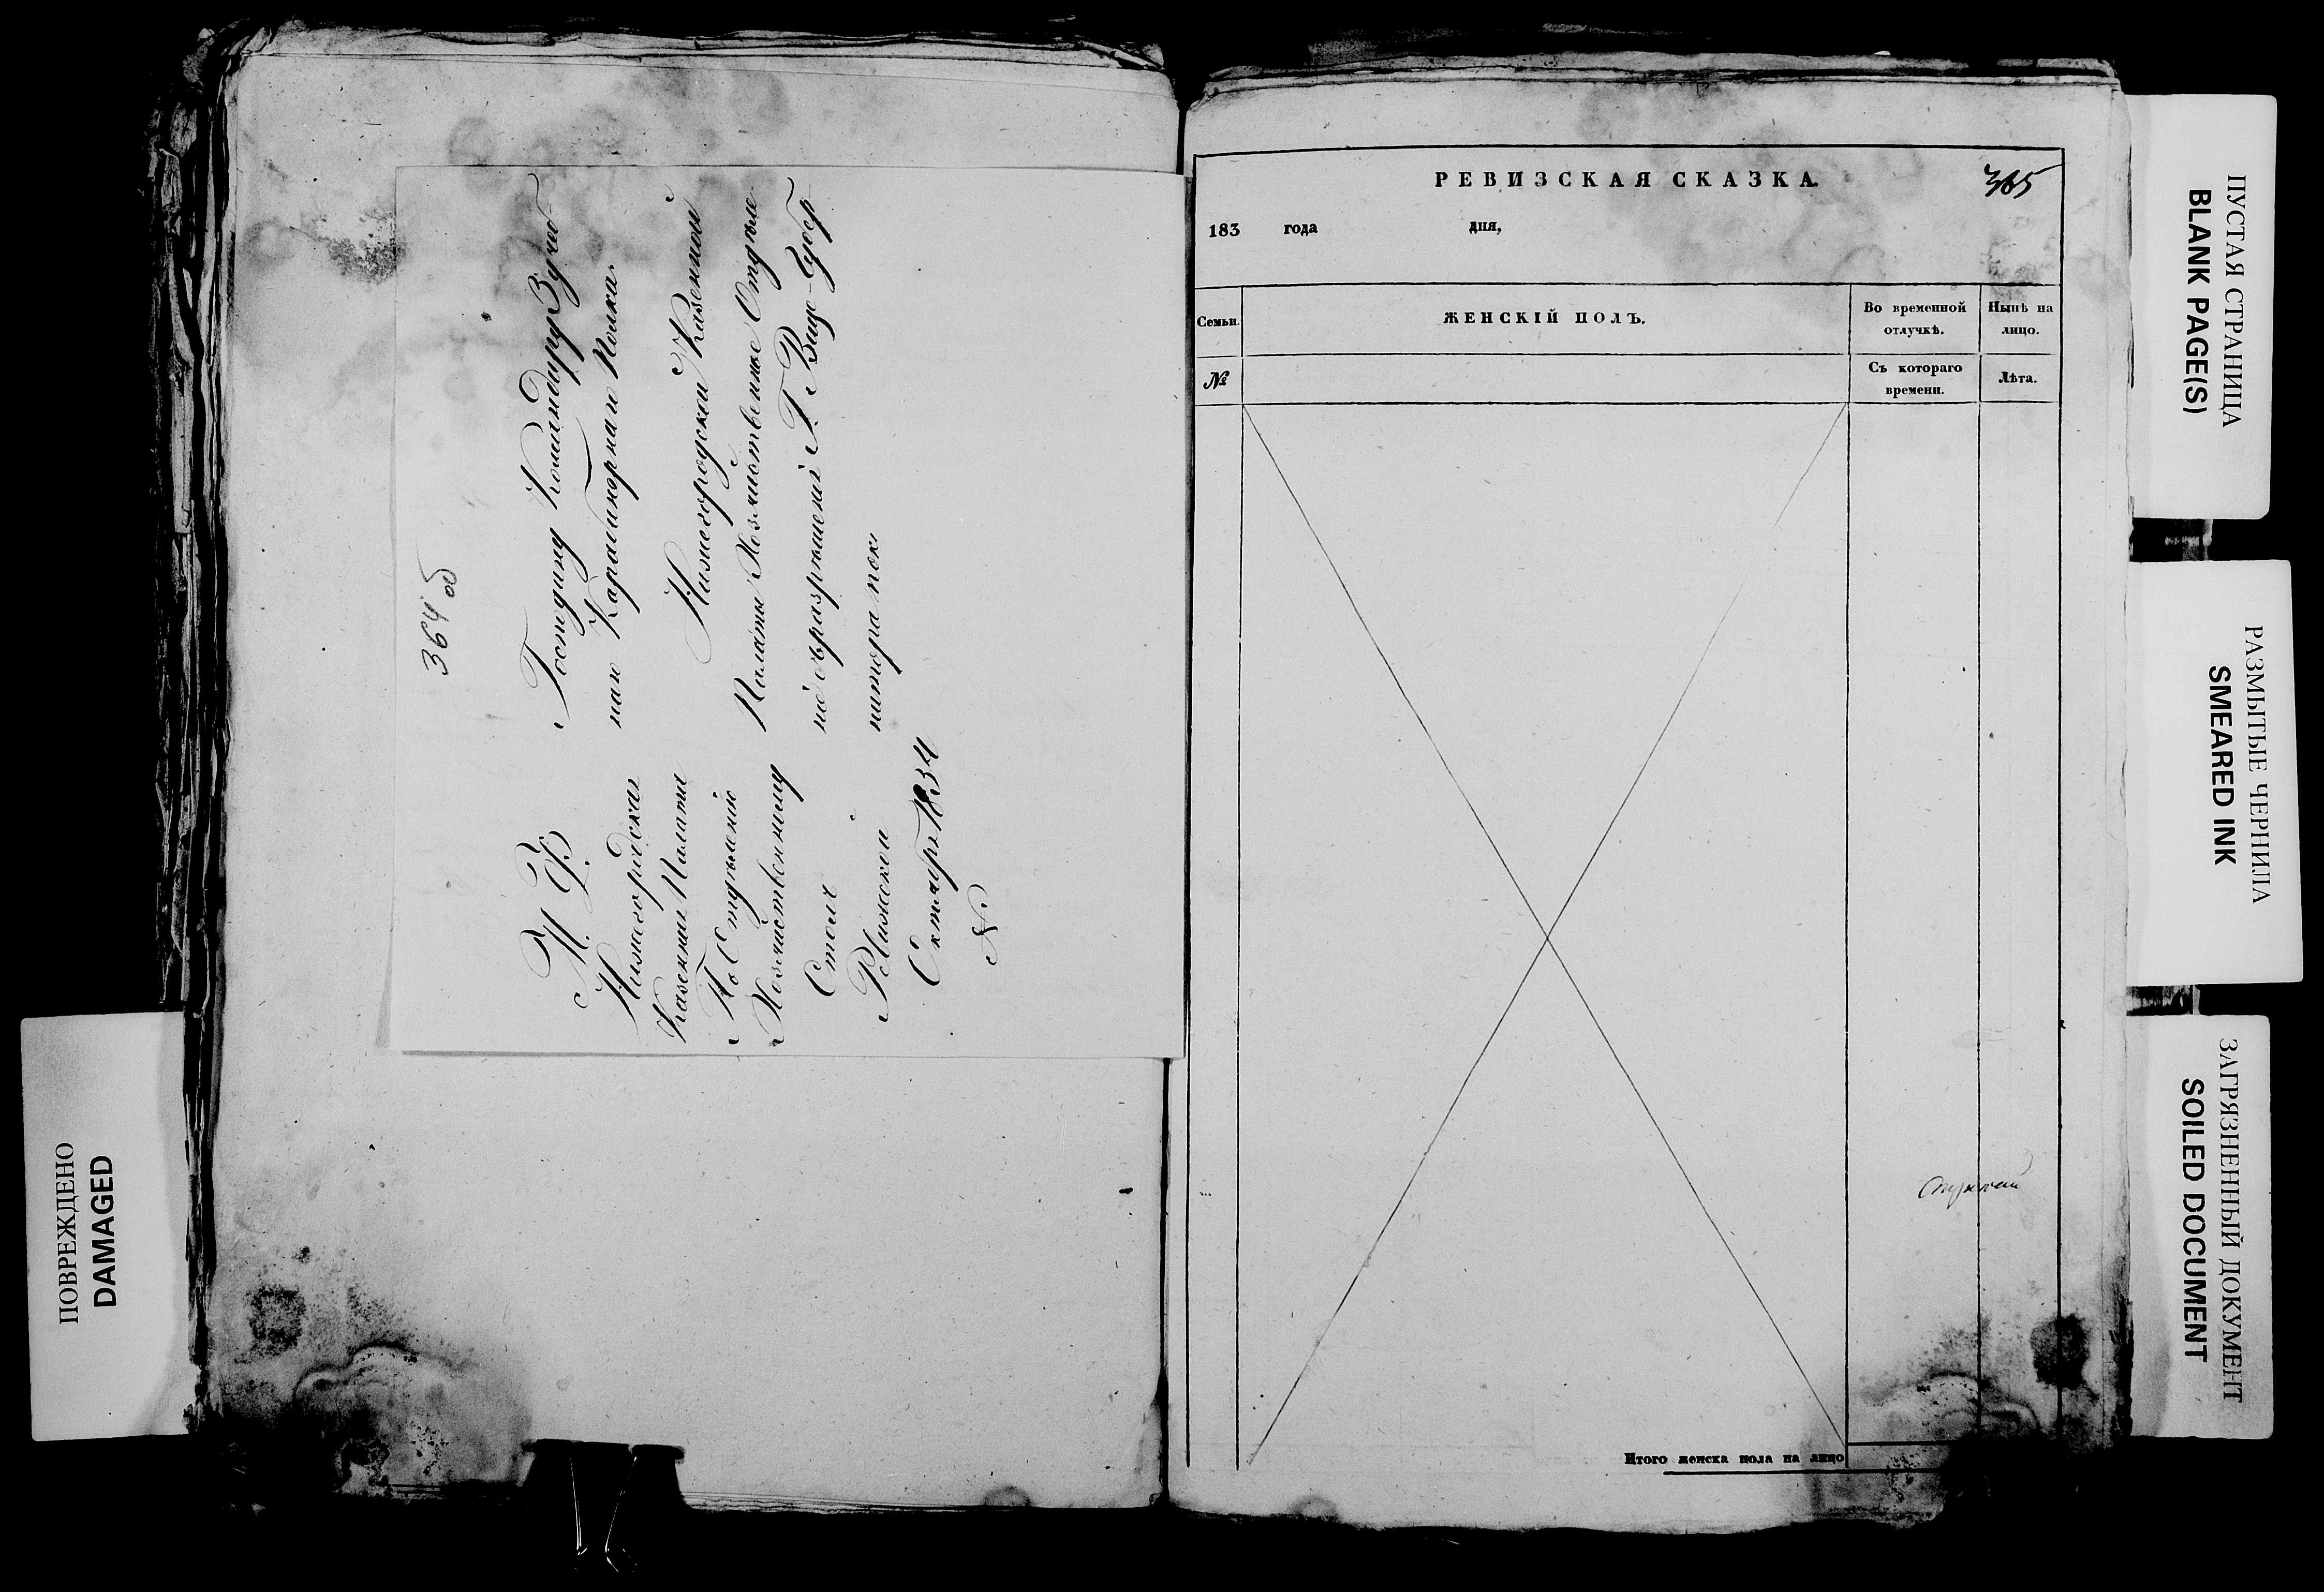 364 об
М. Ф.
Нижегородская
Казенная Палата
По Отделенію
Хозяйственному
Столъ
Ревижской
Октября 1834
№
Господину Командиру
наго Карабинернаго Полка.
Нижегородской Казенной
Палаты Хозяйственное Отделе
по разрешенія Г. Вице-Губер
натора
РЕВИЗСКАЯ СКАЗКА.
365
183 года дня,
Семьи.
ЖЕНСКІЙ ПОЛЪ.
Во временной отлучкѣ.
Нынѣ на лицо.
№
Съ котораго времени.
Лѣта.
Итого женска пола на лицо
ПОВРЕЖДЕНО
DAMAGED
ПУСТАЯ СТРАНИЦА
BLANK PAGE(S)
РАЗМЫТЫЕ ЧЕРНИЛА
SMEARED INK
ЗАГРЯЗНЕННЫЙ ДОКУМЕНТ
SOILED DOCUMENT